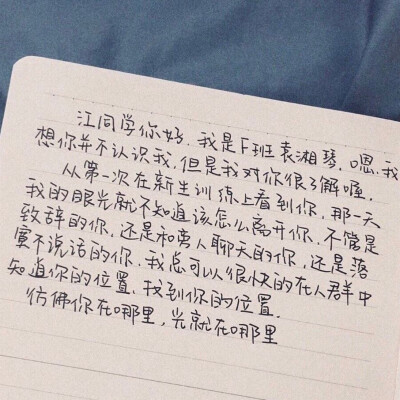 江同学你好.我是F班袁湘琴.嗯,我
想你并不认识我,但是我对你很了解喔.
从第一次在新生训练上看到你,那一天
我的眼光就不知道该怎么离开你.不管是
致辞的你.还是和旁人聊天的你,还是落
寞不说话的你.我总可以很快的在人群中
知道你的位置.找到你的位置.
仿佛你在哪里,光就在哪里